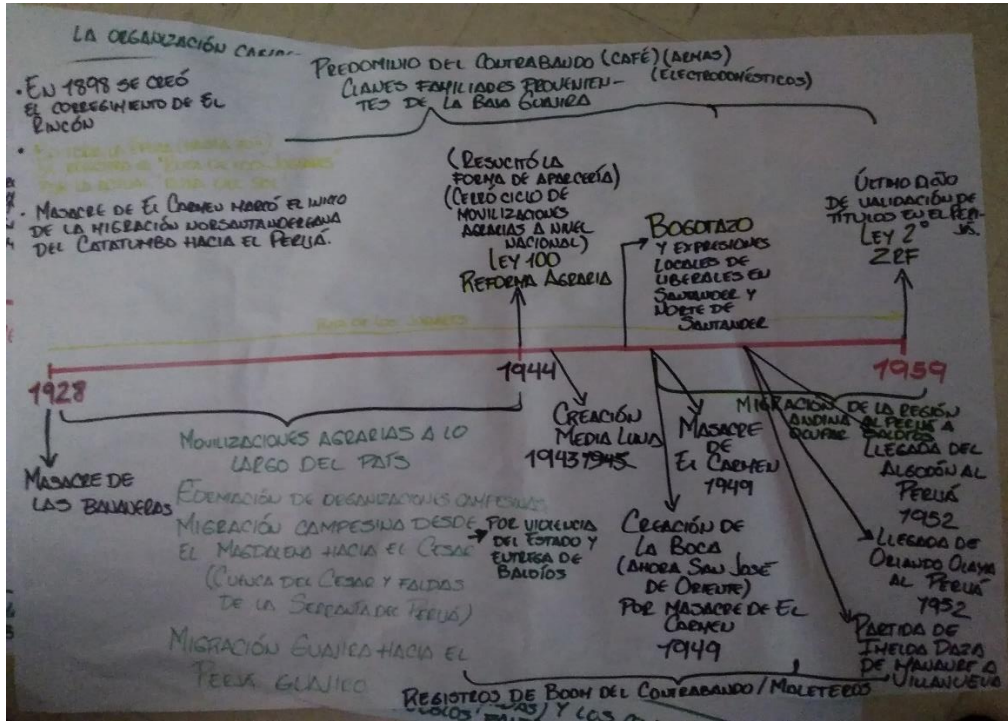 LA ORGANIZACIÓN
• EN 1898 SE CREÓ
EL CORREGIMIENTO DE EL
RINCÓN
• MASACRE DE EL CARMEN MARCÓ EL INICIO
DE LA MIGRACIÓN NORSANTANDEREANA
DEL CATATUMBO HACIA EL PERIJÁ.
PREDOMINIO DEL CONTRABANDO (CAFÉ) (ARMAS)
(ELECTRODOMÉSTICOS)
CLANES FAMILIARES PROVENIEN-
TES DE LA BAJA GUAJIRA
(RESUCITÓ LA
FORMA DE APARCERÍA)
(CERRÓ CICLO DE
MOVILIZACIONES
AGRARIAS A NIVEL
NACIONAL)
LEY 100
REFORMA AGRARIA
BOGOTAZO
Y EXPRESIONES
LOCALES DE
LIBERALES EN
SANTANDER Y
NORTE DE
SANTANDER
ÚLTIMO
DE VALIDACIÓN DE
TÍTULOS EN EL PERI-
JÁ.
LEY 2°
ZRF
1928
1944
1959
MASACRE DE
LAS BANANERAS
MOVILIZACIONES AGRARIAS A LO
LARGO DEL PAÍS
FORMACIÓN DE ORGANIZACIONES CAMPESINAS
MIGRACIÓN CAMPESINA DESDE
EL MAGDALENA HACIA EL CESAR
(CUENCA DEL CESAR Y FALDAS
DE LA SERRANÍA DEL PERIJÁ)
POR VIOLENCIA
DEL ESTADO Y
ENTREGA DE
BALDÍOS
MIGRACIÓN GUAJIRA HACIA EL
PERIJÁ GUAJIRO
CREACIÓN
MEDIA LUNA
1943 1945
MASACRE
DE
EL CARMEN
1949
CREACIÓN DE
LA BOCA
(AHORA SAN JOSÉ
DE ORIENTE)
POR MASACRE DE EL
CARMEN
1949
MIGRACIÓN DE LA REGIÓN
ANDINA AL PERIJÁ A
OCUPAR BALDÍOS
LLEGADA DEL
ALGODÓN AL
PERIJÁ
1952
LLEGADA DE
ORLANDO OLAYA
AL PERIJÁ
1952
PARTIDA DE
IMELDA DAZA
DE MANAURE A
VILLANUEVA
REGISTROS DE BOOM DEL CONTRABANDO / MALETEROS
Y LOS